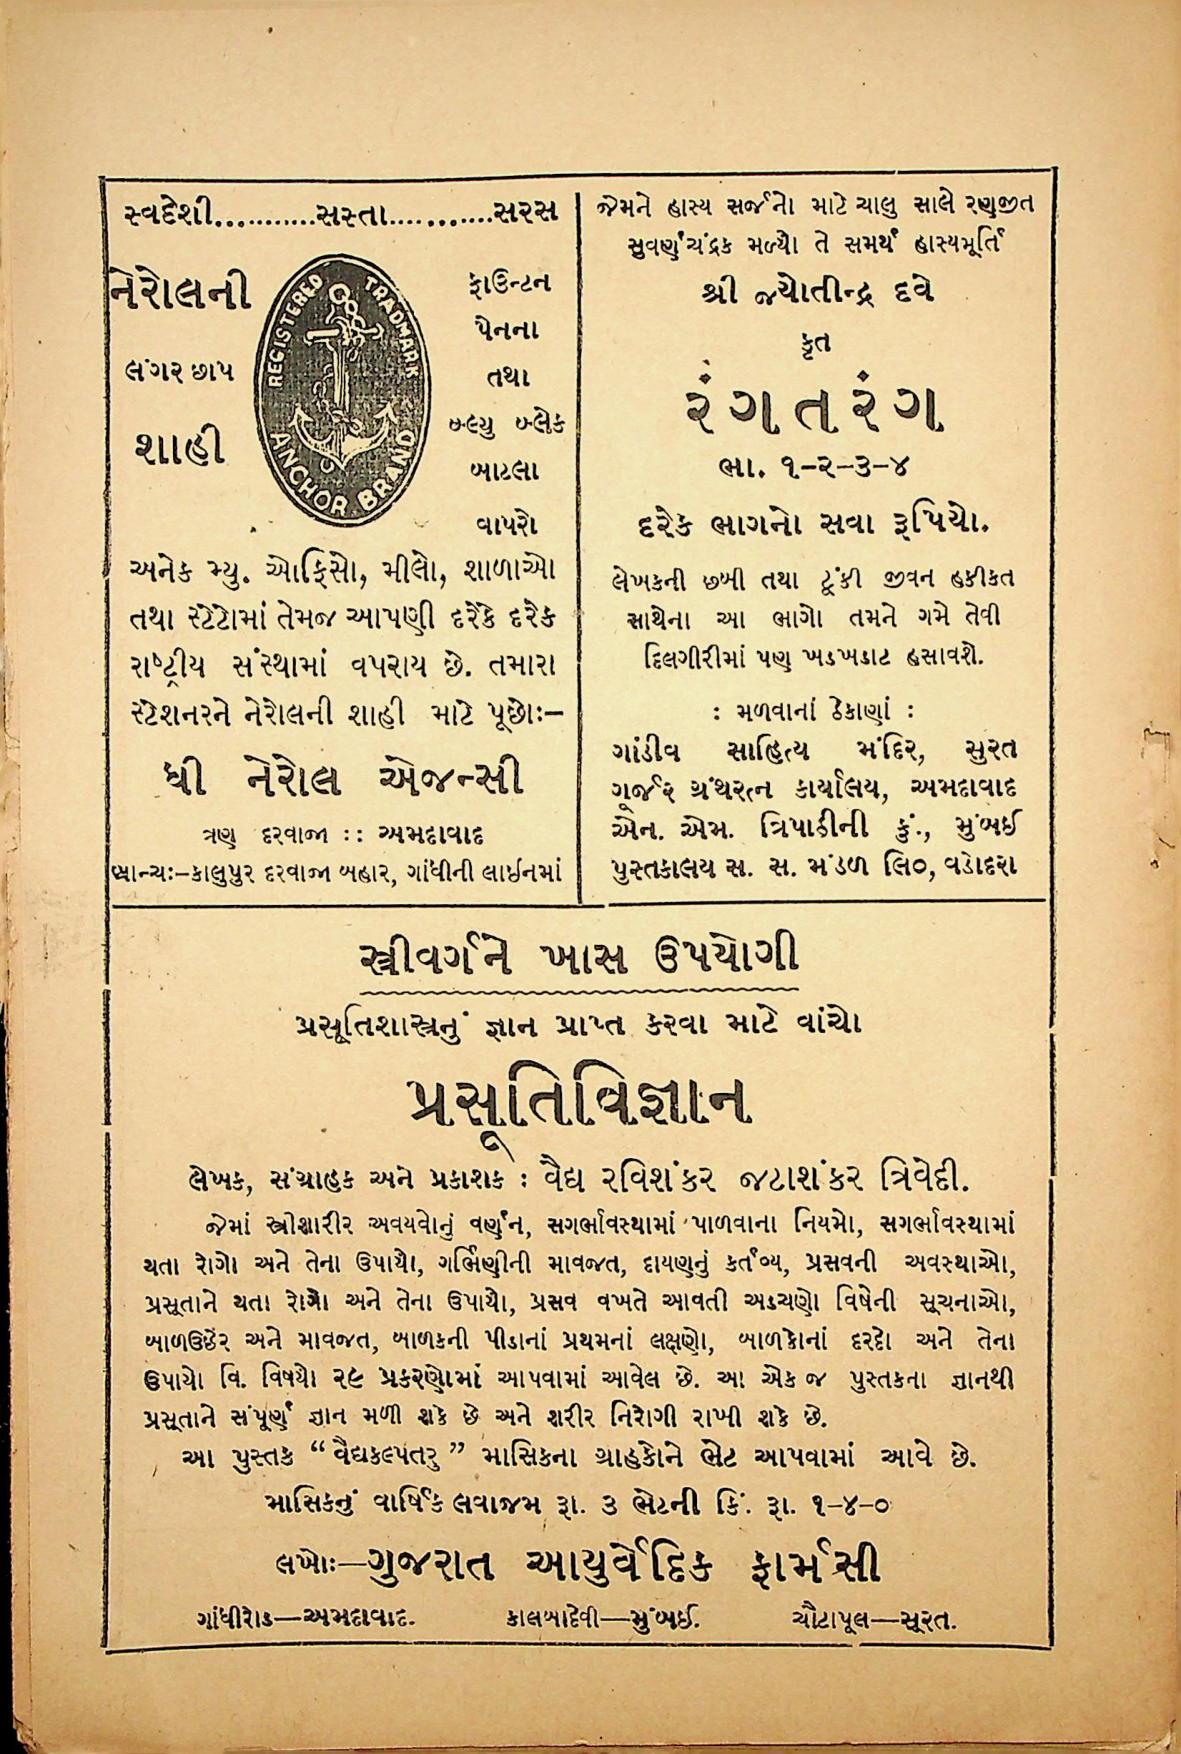 સ્વદેશી...........સસ્તા...........સરસ
નેરોલની
લંગર છાપ
શાહી
REGISTERED TRADMARK
ANCHOR BRAND
ફાઉન્ટન
પેનના
તથા
બ્લ્યુ બ્લેક
બાટલા
વાપરો
અનેક મ્યુ. ઓફિસો, મીલો, શાળાઓ
તથા સ્ટેટોમાં તેમજ આપણી દરેકે દરેક
રાષ્ટ્રીય સંસ્થામાં વપરાય છે. તમારા
સ્ટેશનરને નેરોલની શાહી માટે પૂછો:–
ધી નેરોલ એજન્સી
ત્રણ દરવાજા :: અમદાવાદ
બ્રાન્ચ:–કાલુપુર દરવાજા બહાર, ગાંધીની લાઈનમાં
જેમને હાસ્ય સર્જનો માટે ચાલુ સાલે રણજીત
સુવર્ણચંદ્રક મળ્યો તે સમર્થ હાસ્યમૂર્તિ
શ્રી જ્યોતીન્દ્ર દવે
કૃત
રંગતરંગ
ભા. ૧-૨-૩-૪
દરેક ભાગનો સવા રૂપિયો.
લેખકની છબી તથા ટૂંકી જીવન હકીકત
સાથેના આ ભાગો તમને ગમે તેવી
દિલગીરીમાં પણ ખડખડાટ હસાવશે.
: મળવાનાં ઠેકાણાં :
ગાંડીવ સાહિત્ય મંદિર, સુરત
ગૂર્જર ગ્રંથરત્ન કાર્યાલય, અમદાવાદ
એન. એમ. ત્રિપાઠીની કું., મુંબઈ
પુસ્તકાલય સ. સ. મંડળ લિ૦, વડોદરા
સ્ત્રીવર્ગને ખાસ ઉપયોગી
પ્રસૂતિશાસ્ત્રનું જ્ઞાન પ્રાપ્ત કરવા માટે વાંચો
પ્રસૂતિવિજ્ઞાન
લેખક, સંગ્રાહક અને પ્રકાશક : વૈદ્ય રવિશંકર જટાશંકર ત્રિવેદી.
જેમાં સ્ત્રીશારીર અવયવોનું વર્ણન, સગર્ભાવસ્થામાં પાળવાના નિયમો, સગર્ભાવસ્થામાં
થતા રોગો અને તેના ઉપાયો, ગર્ભિણીની માવજત, દાયણનું કર્તવ્ય, પ્રસવની અવસ્થાઓ,
પ્રસૂતાને થતા રોગો અને તેના ઉપાયો, પ્રસવ વખતે આવતી અડચણો વિષેની સૂચનાઓ,
બાળઉછેર અને માવજત, બાળકની પીડાનાં પ્રથમનાં લક્ષણો, બાળકોનાં દરદો અને તેના
ઉપાયો વિ. વિષયો ૨૯ પ્રકરણોમાં આપવામાં આવેલ છે. આ એક જ પુસ્તકના જ્ઞાનથી
પ્રસૂતાને સંપૂર્ણ જ્ઞાન મળી શકે છે અને શરીર નિરોગી રાખી શકે છે.
આ પુસ્તક “વૈદ્યકલ્પતરુ” માસિકના ગ્રાહકોને ભેટ આપવામાં આવે છે.
માસિકનું વાર્ષિક લવાજમ રૂા. ૩ ભેટની કિં. રૂા. ૧-૪-૦
લખો:—ગુજરાત આયુર્વેદિક ફાર્મસી
ગાંધીરોડ—અમદાવાદ. કાલબાદેવી—મુંબઈ. ચૌટાપૂલ—સૂરત.